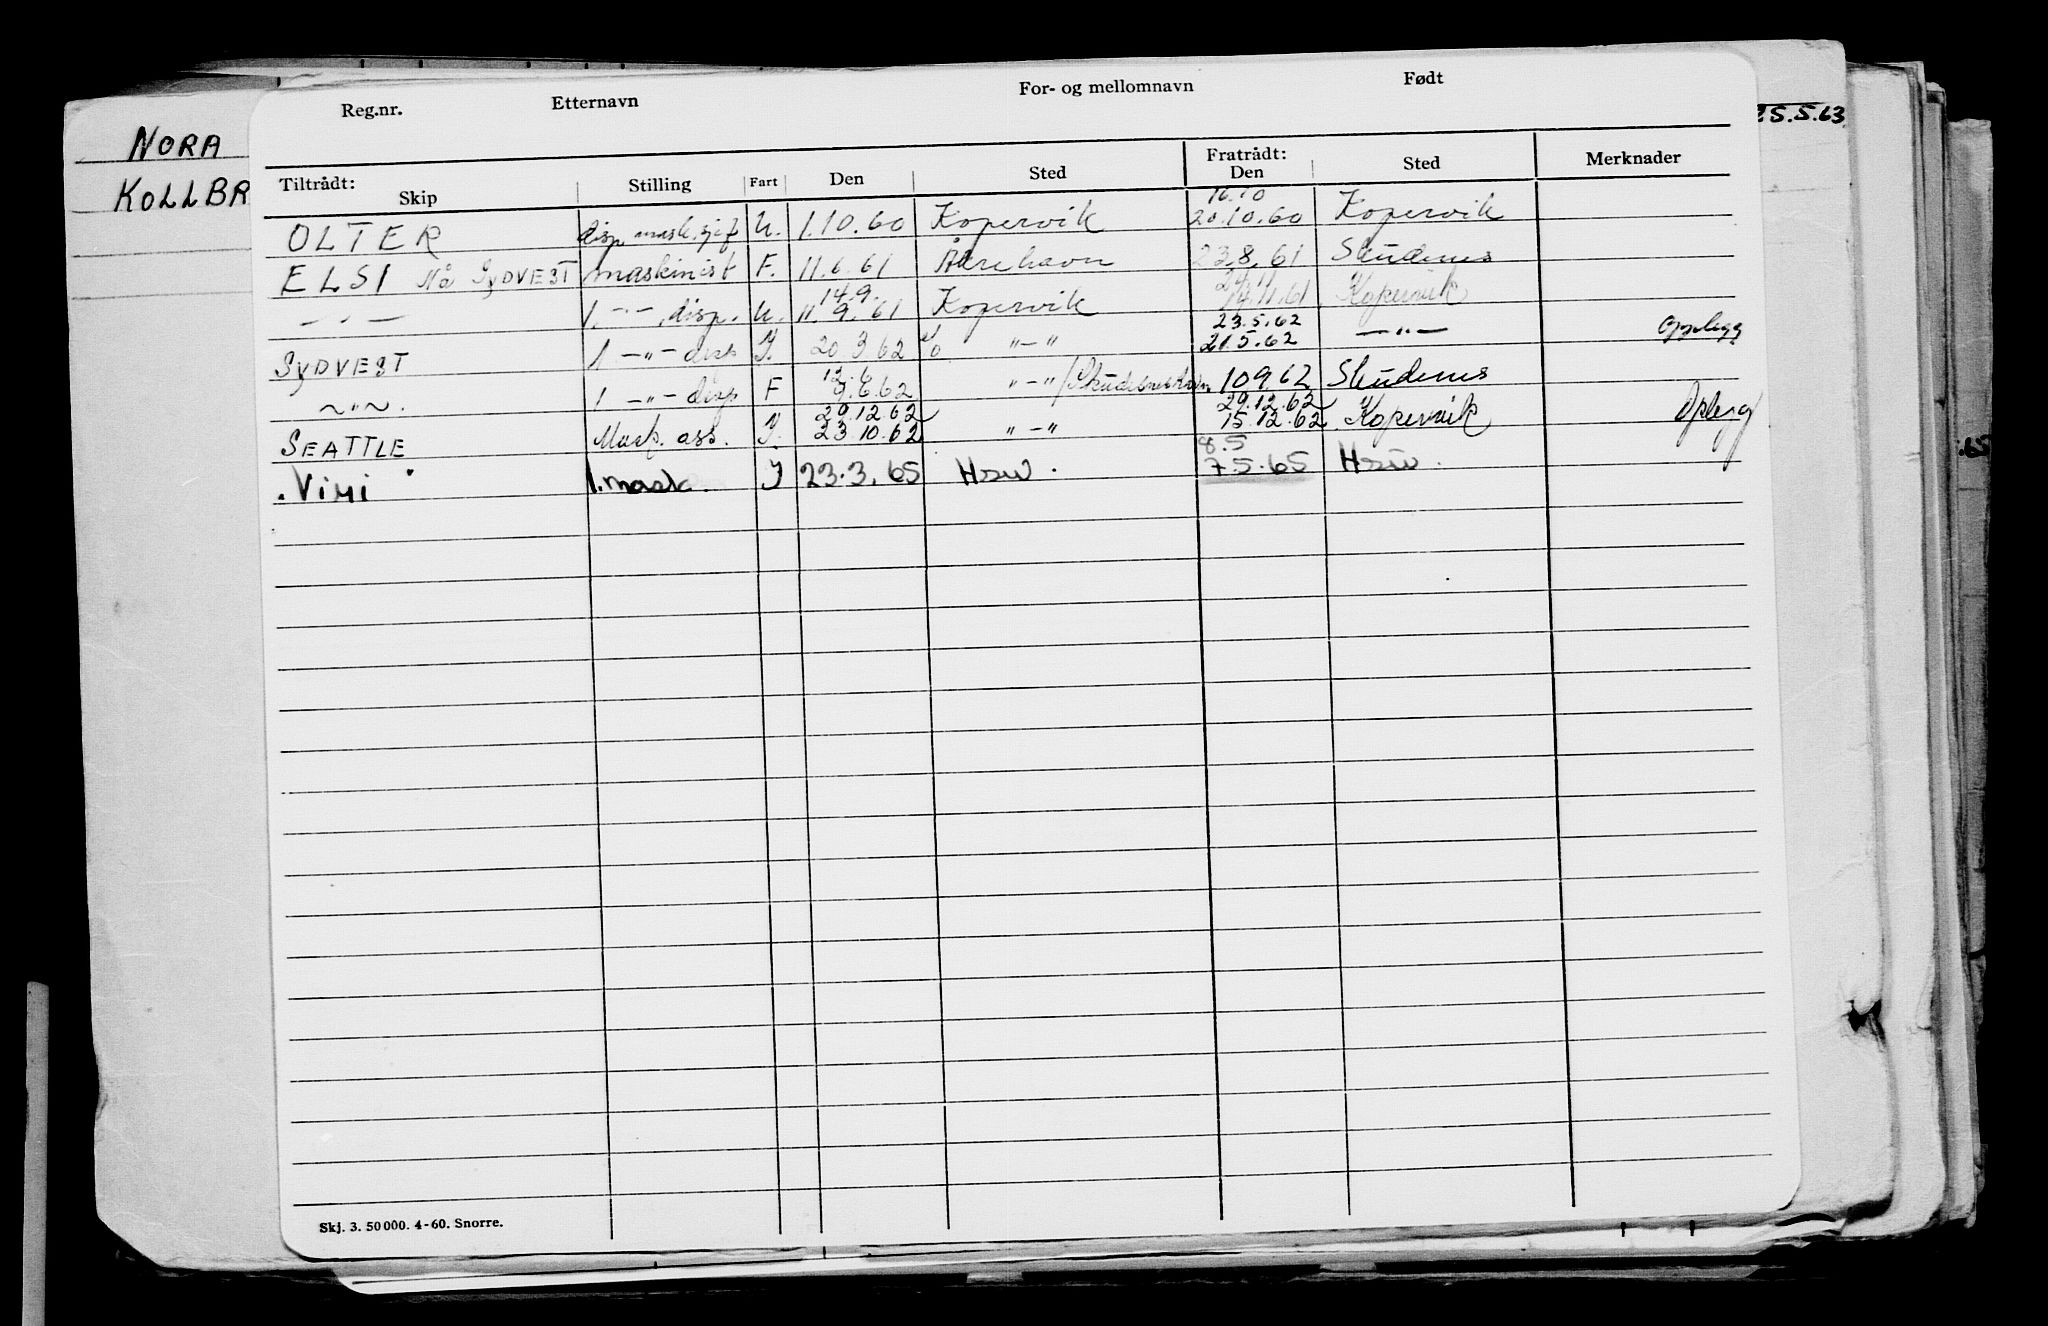 Reg.nr. Etternavn For- og mellomnavn Født
25.5.63
NORA
KOLLBR
Tiltrådt: Skip Stilling Fart Den Sted Fratrådt: Den Sted Merknader
16.10
OLTER disp mask.sjef U. 1.10.60 Kopervik 20.10.60 Kopervik
ELSI Nå SYDVEST maskinist F. 11.6.61 Åkrehavn 23.8.61 Skudenes
14.9. 24.11
— " — 1. — " — disp. U. 11.9.61 Kopervik 14.11.61 Kopervik
23.5.62
SYDVEST 1 — " — disp I. 20.3.62 " — " 21.5.62 — " — Opplegg
12.6
~ " ~. 1 — " — disp F 9.6.62 " — " / Skudeneshavn. 10 9 62 Skudenes
29.12.62 29.12.62
SEATTLE Mask. ass. I. 23.10.62 " — " 15.12.62 Kopervik Oplegg
8.5
. Viri 1. mask. I 23.3.65 Hsw. 7.5.65 Hsw.
.65
Skj. 3. 50 000. 4-60. Snorre.